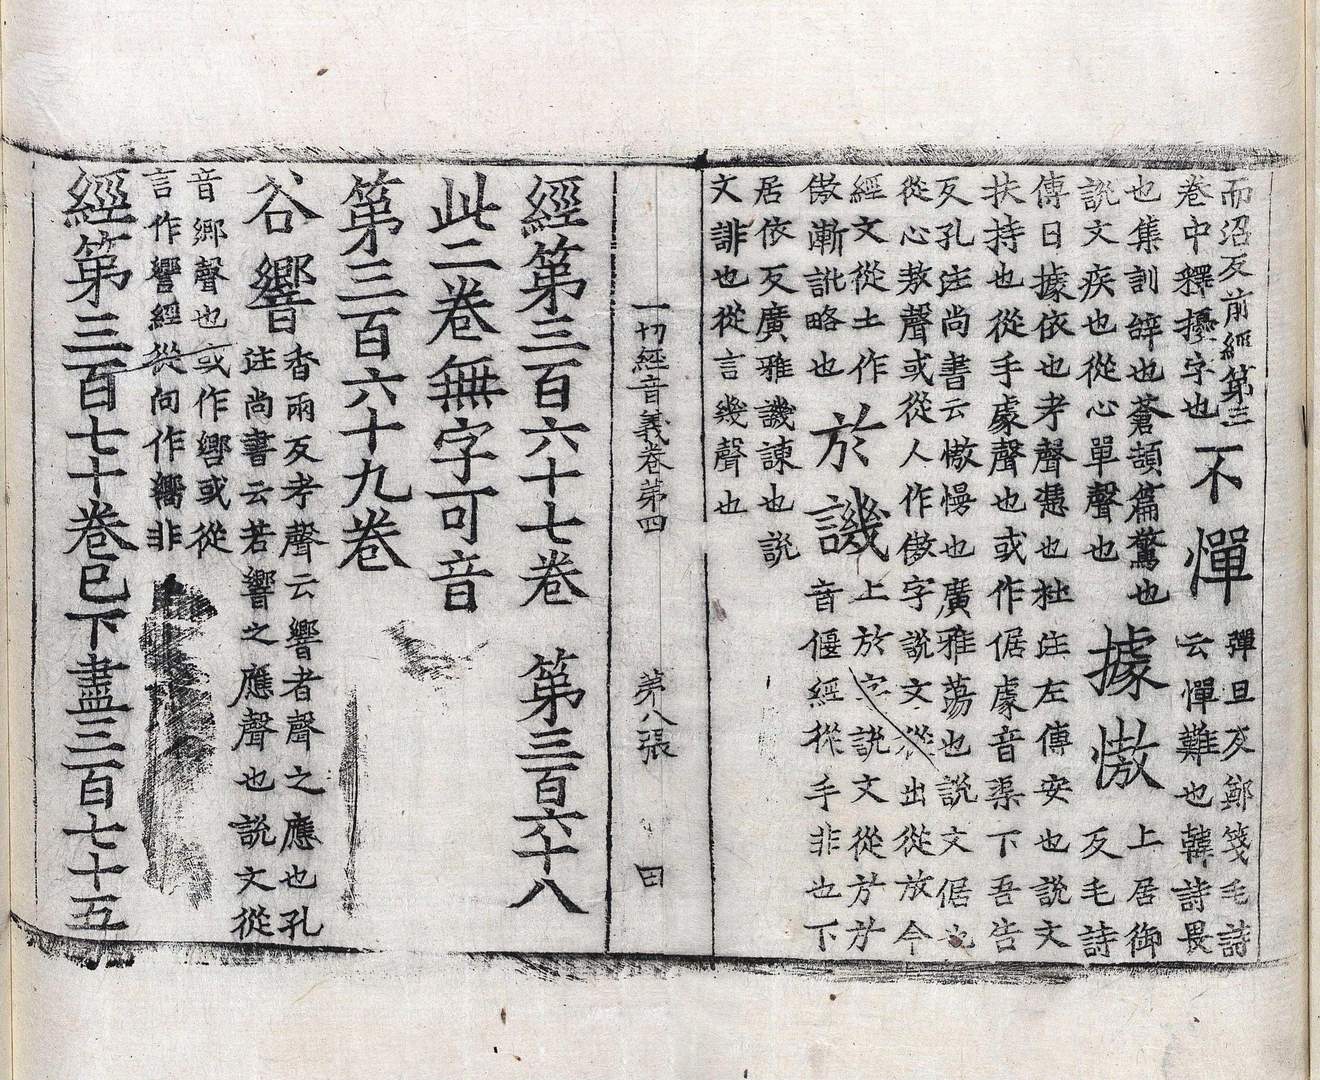 而沼反前經第三
卷中釋擾字也
不憚
彈旦反鄭箋毛詩
云憚難也韓詩畏
也集訓辭也蒼頡篇驚也
說文疾也從心單聲也
據慠
上居御
反毛詩
傳曰據依也考聲憑也杜注左傳安也說文
扶持也從手豦聲也或作倨豦音渠下吾告
反孔注尚書云慠慢也廣雅蕩也說文倨也
從心敖聲或從人作傲字說文從出從放今
經文從土作
傲漸訛略也
於譏
上於字說文從㫃㫃
音偃經從手非也下
居依反廣雅譏諫也說
文誹也從言幾聲也
一切經音義卷第四 第八張 田
經第三百六十七卷 第三百六十八
此二卷無字可音
第三百六十九卷
谷響
香兩反考聲云響者聲之應也孔
注尚書云若響之應聲也說文從
音鄉聲也或作響或從
言作響經從向作嚮非
經第三百七十卷已下盡三百七十五